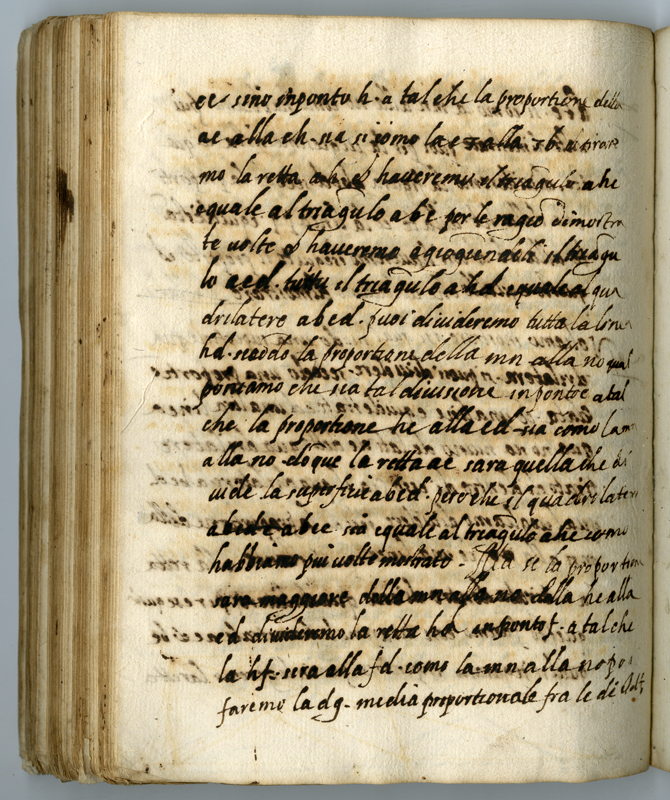 ec sino inponto h. a tal che la proportione della
ae alla eh. sia si como la alla tirare
mo la retta ah. & haveremo il triãgulo ahe
equale al triãgulo abe per le ragiõ dimostra
te volte & haveremo il triãgu
lo aed. tutto il triãgulo ahd equale al qua
drilatero abcd. puoi divideremo tutta la linea
hd. secõdo la proportione della mn alla no qual
poniamo che sia tal divisione in ponto e a tal
che la proportione he alla ed. sia como la mn
alla no. dõque la retta ae sara quella che di
vide la superficie abcd. però che il quadrilatero
abce sia equale al triãgulo ahe como
habbiamo piu volte mostrato. Ma se la proportione
sara maggiore della mn alla no. della he alla
ed. divideremo la retta hd in ponto f. a tal che
la hf. sera alla fd. como la mn alla no poi
faremo la dg. media proportionale fra le